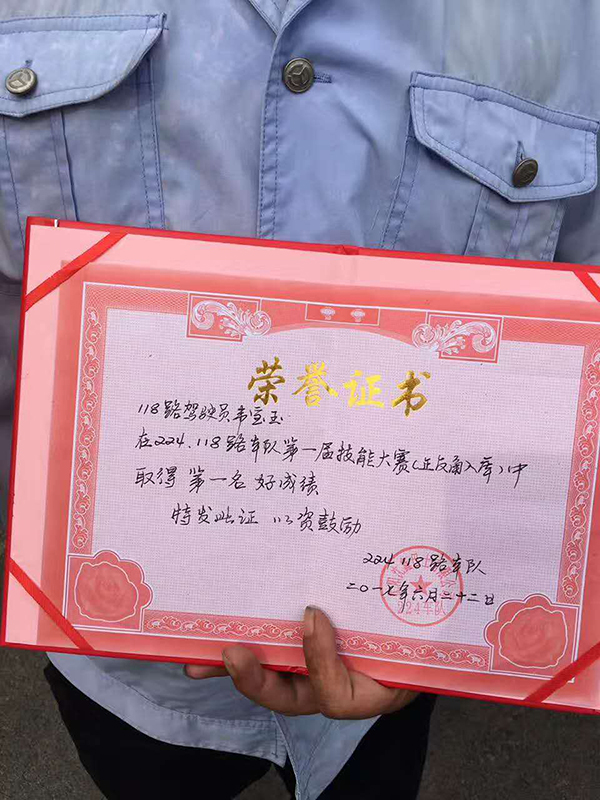 荣誉证书
118路驾驶员韦宝玉
在224.118路车队第一届技能大赛(正反角入库)中
取得 第一名 好成绩
特发此证 以资鼓励
224 118路车队
二〇一七年六月二十二日
24车队